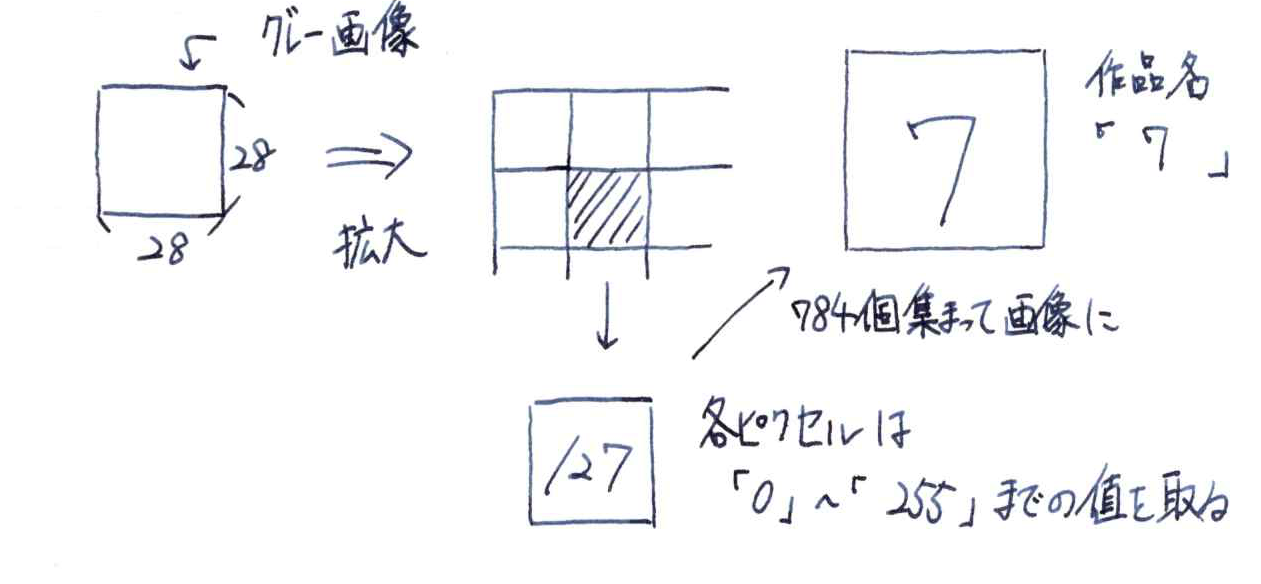 グレー画像
28
28
拡大
7
作品名
「7」
784個集まって画像に
127
各ピクセルは
「0」~「255」までの値を取る